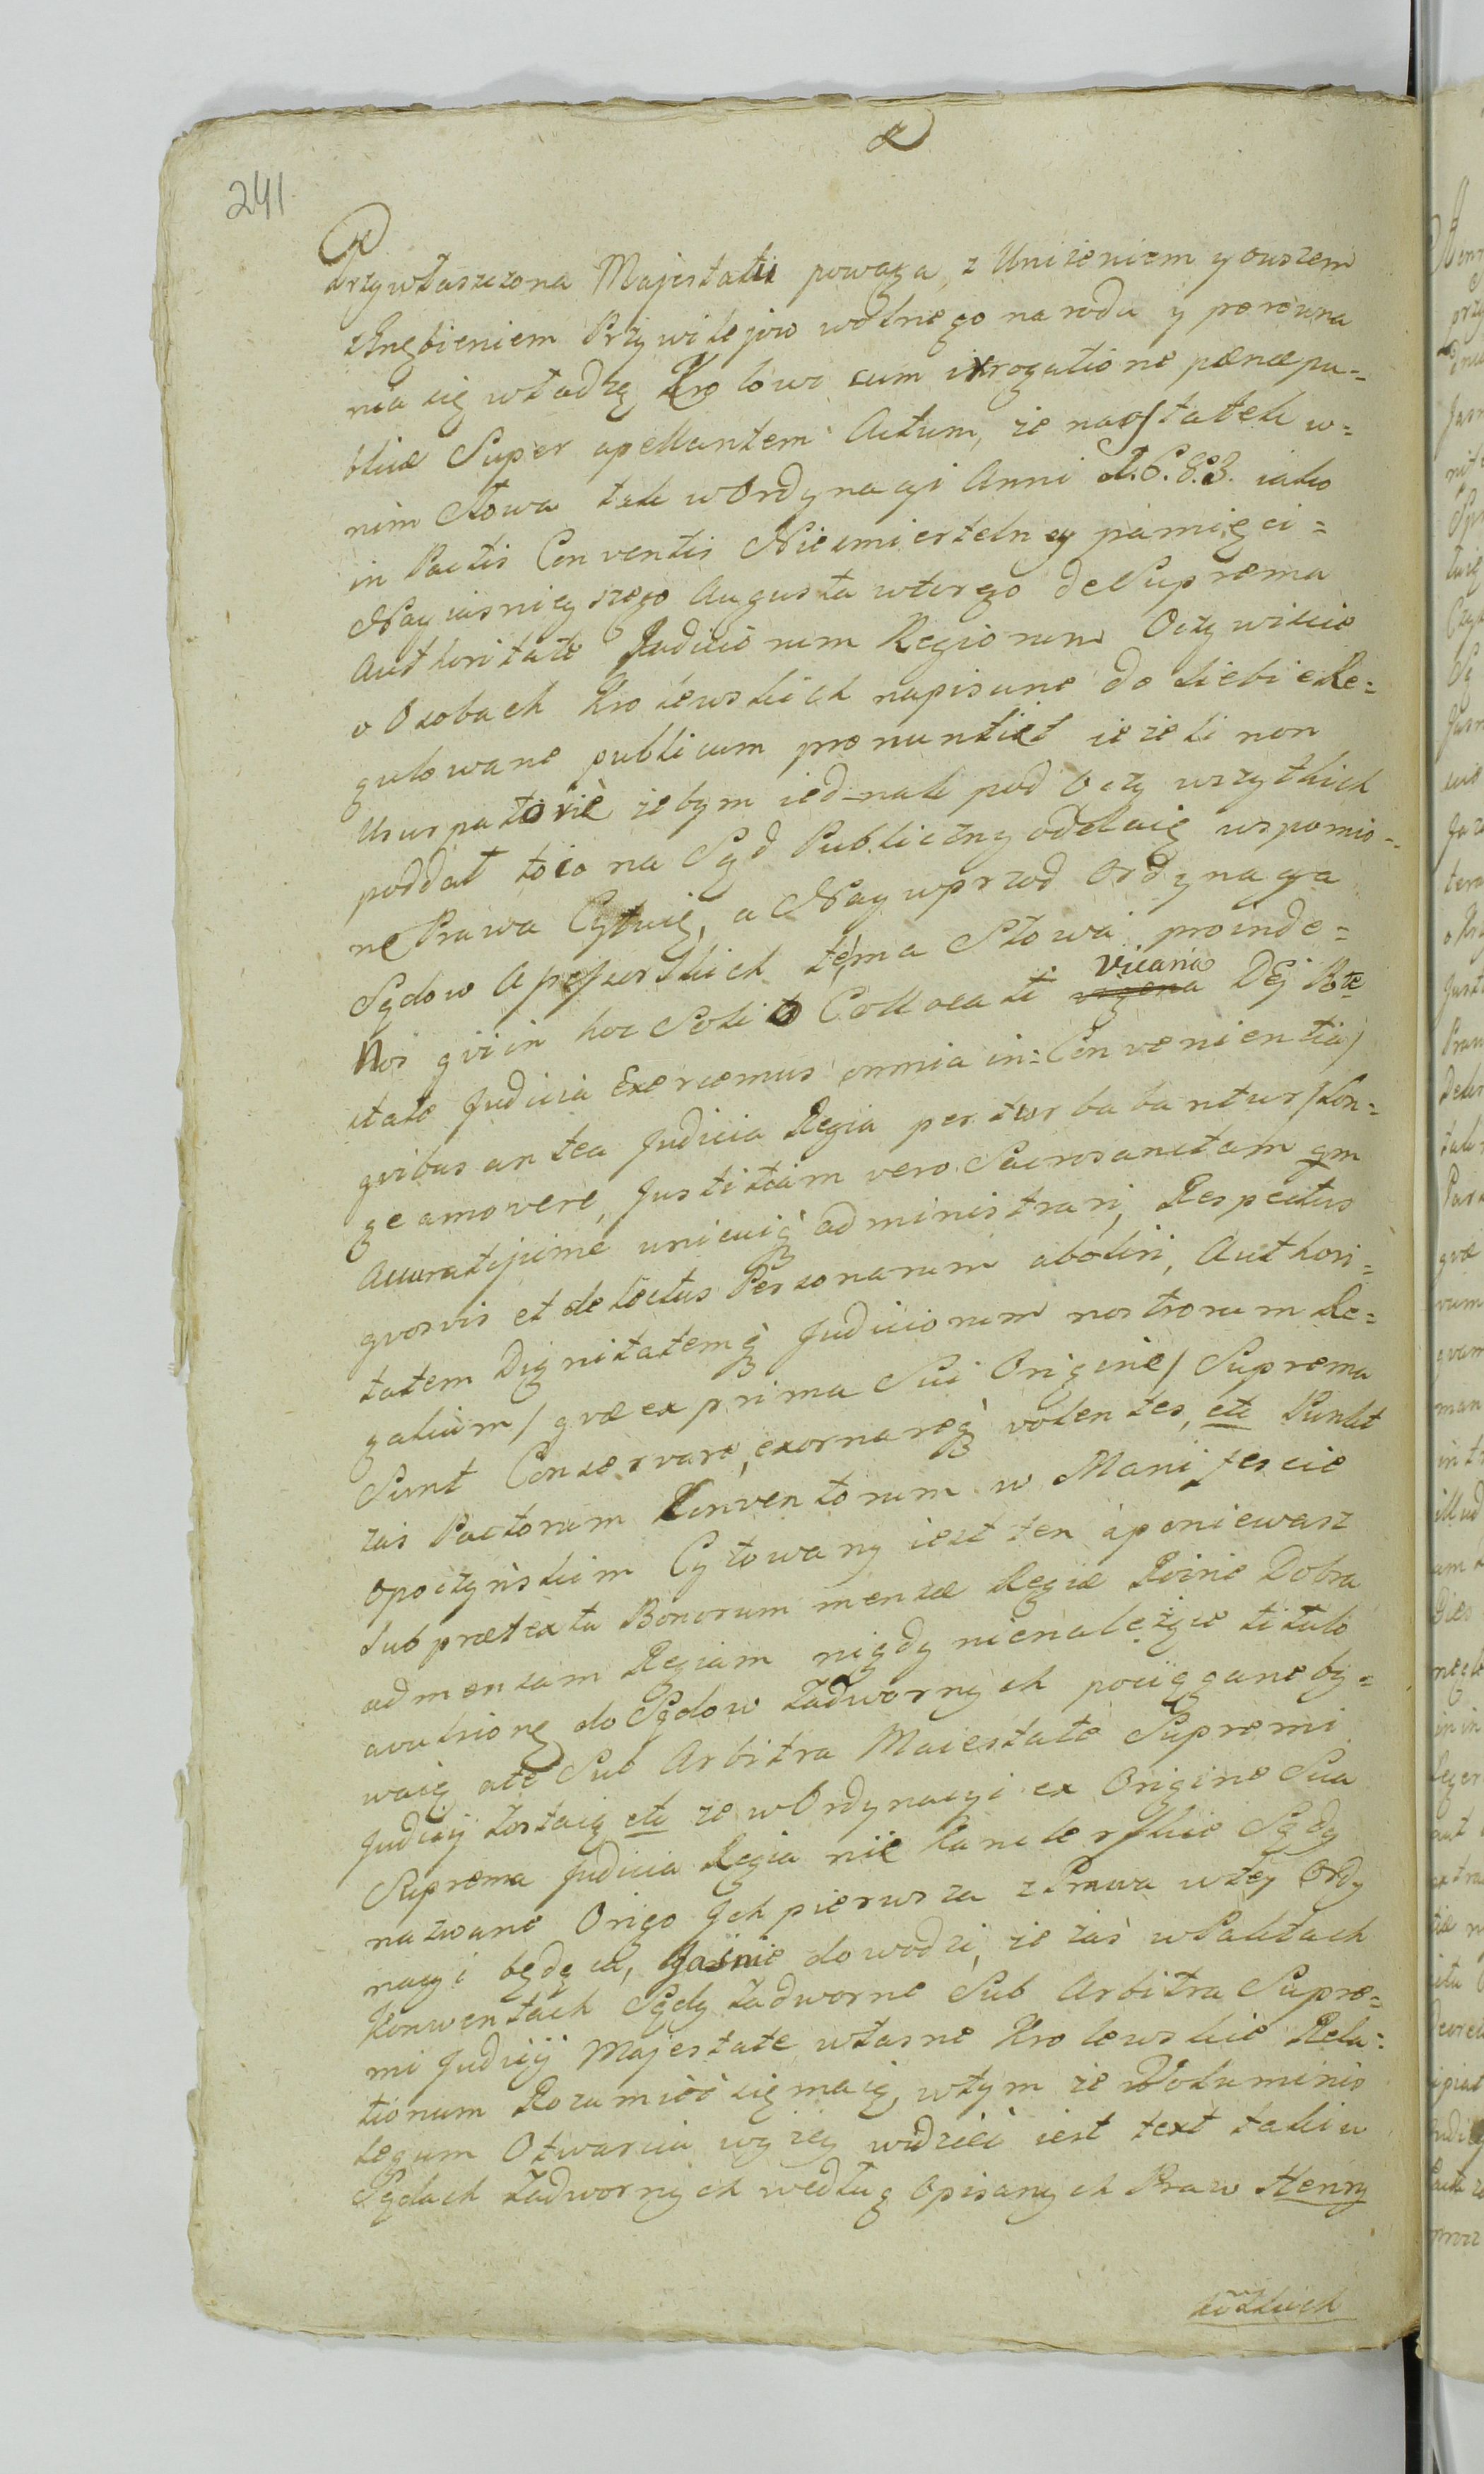 241
przywłaszczona Majestatis powaga, z Uniżeniem y owszem
zGnębieniem Przywilejow wolnego narodu y porowna
nia się władzę Krolowi cum irrogatione pænæ pu=
blicæ Super apellantem Actum, że naostatek w=
nim Słowa tak wOrdynacyi Anni 1.6.8.3. iako
in Pactis Conventis Niesmiertelney pamięci=
Nayiasnieyszego Augusta wtorego de Suprema
Authoritate Judiciorum Regiorum Oczywiscie
o Osobach Krolewskich napisane do siebie Re=
gulowane publicum pronuntiet ieżeli non
Usurpatoriè żebym iednak pod Oczy wszytkich
poddał to co na Sąd Publiczny oddaię wspomio=
ne Prawa Cytuię, a Nayuprzod Ordynacya
Sądow Assessorskich tę ma Słowa proinde=
Nos qvi in hoc Solio Collocati vicaria DEj Pote
state Judicia Exercemus omnia in=Convenientia/
qvibus antea Judicia Regia perturbabantur/Lon=
ge amovere, Justitiam vero Sacrosanctam qm
Accuratissime unicuiq administrari, Respectus
qvosvis et delectus Personarum aboleri, Authori=
tatem Dignitatemq Judiciorum nostrorum Re=
galium/ qvæ ex prima Sui Origine/ Suprema
Sunt Conservare, exornareq volentes, etc Punkt
zas Pactorum Konventorum w Manifescie
opoczyńskim Cytowany iest ten iponiewasz
sub prætextu Bonorum mensæ Regiæ Rożne Dobra
ad mensam Regiam nigdy nienależące titulo
avulsionę do Sądow Zadwornych pociągane by=
waią ale Sub Arbitra Maiestate Supremi
Judicij zostaią etc ze wOrdynacyi ex Origine Sua
Suprema Judicia Regia nie Kanclerskie Sądy
nazwane Origo Ich pierwsza z Prawa wtey Ordy
nacyi będąca, Jasnie dowodzi, że zaś wPaktach
Konwentach Sądy Zadworne Sub Arbitra Supre=
mi Judicij Majestate własne Krolewskie Rela=
tionum Rozumieć się maią, wtym że wVoluminie
Legum Otwarciu wyżey widzieć iest text taki w
Sądach Zadwornych według Opisanych Praw Henry
kowskich